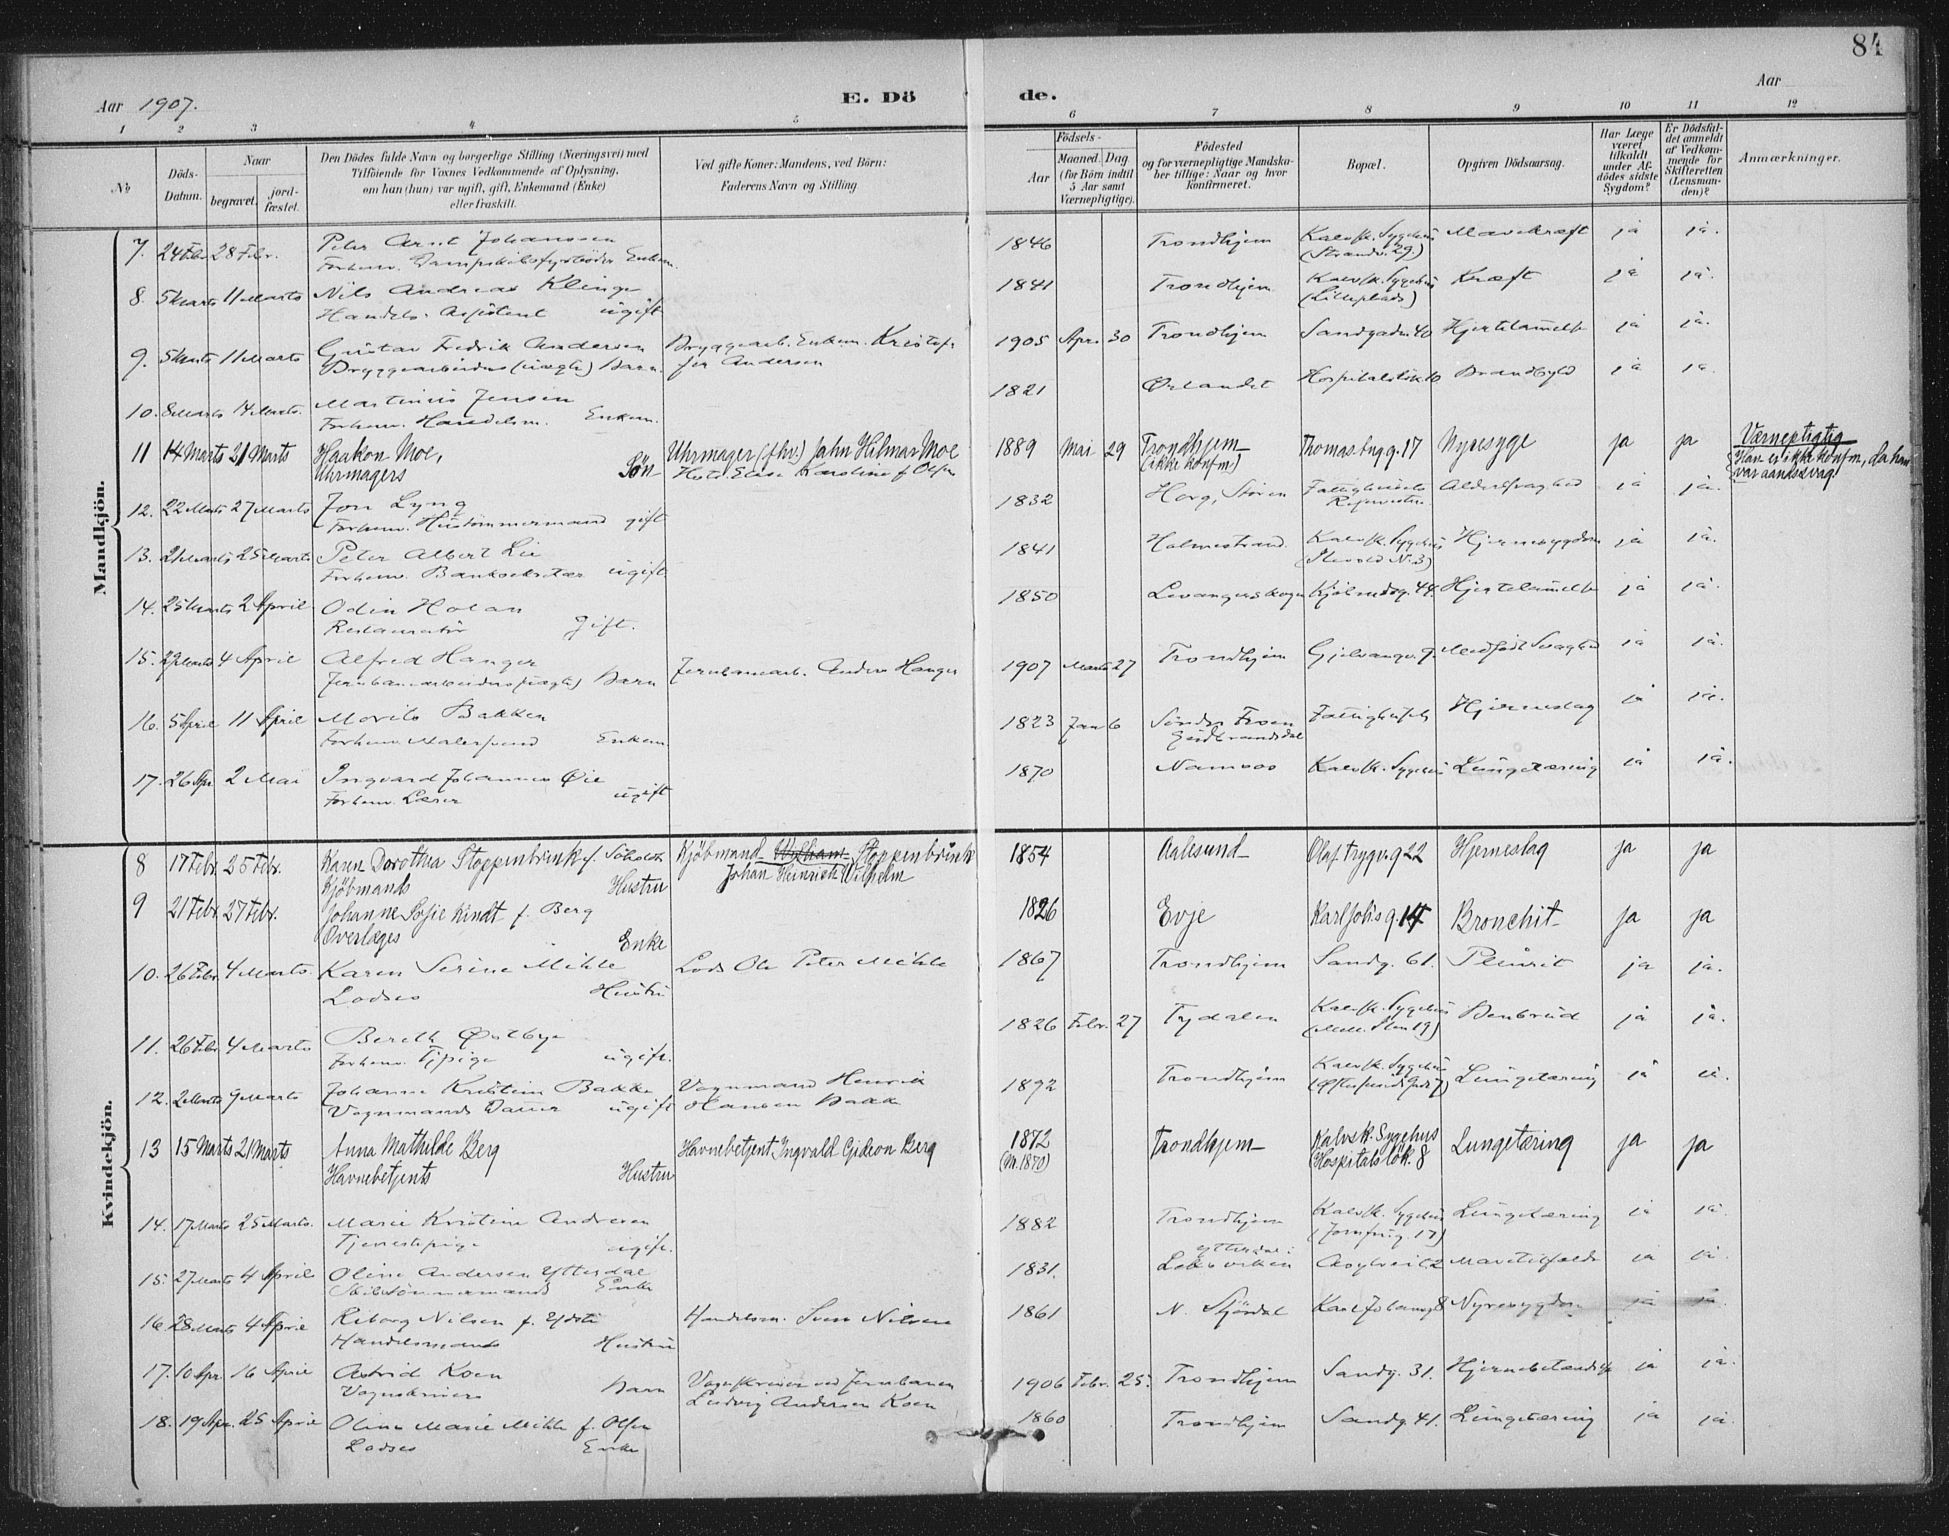 84
Aar 1907.
E. Dö
de.
Aar
1 2 3 4 5 6 7 8 9 10 11 12
No
Döds-Datum.
Naar
begravet.
jord-fæstet.
Den Dödes fulde Navn og borgerlige Stilling (Næringsvei) med
Tilföiende for Voxnes Vedkommende af Oplysning,
om han (hun) var ugift, gift, Enkemand (Enke)
eller fraskilt.
Ved gifte Koner: Mandens, ved Börn:
Faderens Navn og Stilling
Födsels-
Aar
Maaned. Dag
(for Börn indtil
5 Aar samt
Værnepligtige).
Födested
og for værnepligtige Mandska-
ber tillige: Naar og hvor
konfirmeret.
Bopæl.
Opgiven Dödsaarsag.
Har Læge
været
tilkaldt
under Af-
dödes sidste
Sygdom?
Er Dödsfal-
det anmeldt
af Vedkom-
mende for
Skifteretten
(Lensman-
den)?
Anmærkninger.
Mandkjön.
7. 24 Febr 28 Febr. Peter Arnt Johanssen 1846 Trondhjem Kalvsk. Sygehus Mavekræft ja ja.
Forhenv. Dampskibsfyrbøder Enkem. (Strandv. 29)
8. 5 Marts 11 Marts Nils Andreas Klinge 1841 Trondhjem Kalvsk. Sygehus Kræft ja ja.
Handels-Assistent ugift
9. 5 Marts 11 Marts Gustav Fredrik Andersen Bryggearb. Enkem. Kristof- 1905 Apr. 30 Trondhjem Sandgaden 40 Hjertelammelse ja ja.
Bryggearbeiders (uægte) Barn. fer Andersen
10. 8 Marts 14 Marts. Martinus Jensen 1821 Ørlandet Hospitalsløk. 10 ja ja.
Forhenv. Handelsm. Enkem.
11 14 Marts 21 Marts Haakon Moe, Uhrmager (fhv.) Jahn Hilmar Moe 1889 Mai 29 Trondhjem Thomas bugg. 17 Nyresyge ja ja Værnepligtig
Uhrmagers Søn Hst. Elise Karoline f. Olsen (ikke konfm.) Han er ikke konfm., da han
var aandssvag.
12. 22 Marts 27 Marts Jon Lyng 1832 Horg, Støren Fattighusets Alderssvaghed ja ja.
Forhenv. Hustømmermand gift
13. 21 Marts 25 Marts Peter Albert Lie 1841 Holmestrand. Kalvsk. Sygehus Hjernesygdom ja ja.
Forhenv. Banksekretær ugift (Ilevold N. 3)
14. 25 Marts 2 April Odin Holan 1850 Levangerskogn Kjøbmdsg. 44. Hjertelammelse ja ja.
Restauratør Gift.
15. 29 Marts 4 April Alfred Hanger Jernbanearb. Anders Hanger 1907 Marts 27 Trondhjem Medfødt Svaghed ja ja.
Jernbanearbeiders (uægte) Barn
16. 5 April 11 April Morits Bakken 1823 Jan 6 Søndre Froen Fattighuset Hjerneslag ja ja.
Forhenv. Malersvend Enkem. Gudbrandsdal
17. 26 Apr 2 Mai Ingvard Johannes Øie 1870 Namsos Kalvsk. Sygehus Lungetæring ja ja.
Forhenv. Lærer ugift
Kvindekjön.
8 17 Febr. 25 Febr. Karen Dorothea Stoppenbrink f. Søholdt Kjøbmand Wilham Stoppenbrink 1854 Aalesund Olaf Trygv. g 22 Hjerneslag ja ja
Kjøbmands Hustru Johan Heinrich Wilhelm
9 21 Febr. 27 Febr. Johanne Sofie Kindt f. Berg 1826 Evje Karl Joh's g. 14 Bronchit ja ja
Overlæges Enke
10. 26 Febr 4 Marts. Karen Serine Mikle Lods Ole Peter Mikle 1867 Trondhjem Sandg. 61. Pleurit ja ja.
Lodses Hustru
11. 26 Febr 4 Marts Bereth Østbye 1826 Febr. 27 Tydalen Kalvsk. Sygehus Benbrud ja ja.
Forhenv. Tjpige ugift.
12. 2 Marts 9 Marts Johanna Kristine Bakke Vognmand Henrik 1892 Trondhjem Kalvsk. Sygehus Lungetæring ja ja.
Vognmands Datter ugift Hansen Bakk
13 15 Marts 21 Marts Anna Mathilde Berg Havnebetjent Ingvald Gideon Berg 1872 Trondhjem Kalvsk. Sygehus Lungetæring ja ja
Havnebetjents Hustru (M. 1870) (Hospitalsløk. 8
14. 17 Marts 25 Marts. Marie Kristine Andresen 1882 Trondhjem Kalvsk. Sygehus Lungetæring ja ja.
Tjenestepige ugift. (Jomfrug. 17)
15. 27 Marts 4 April Oline Andersen Ytterdal 1831. Ytterdal i Leksviken Asylveit. 2 ja ja.
Skibstømmermands Enke
16. 28 Marts 4 April Riborg Nilsen f. Handelsm. Sven Nilsen 1861 N. Stjørdal Karl Johansg 8 Nyresygdom ja ja
Handelsmands Hustru
17. 10 Apr 16 April Astrid Koen Vognskriver ved Jernbanen 1906 Febr. 25. Trondhjem Sandg. 31. Hjernebetændelse ja ja.
Vognskrivers Barn Ludvig Andersen Koen
18. 19 Apr. 25 April Oline Marie Mikle f. Olsen 1860 Trondhjem Sandg. 41. Lungetæring ja ja.
Lodses Enke